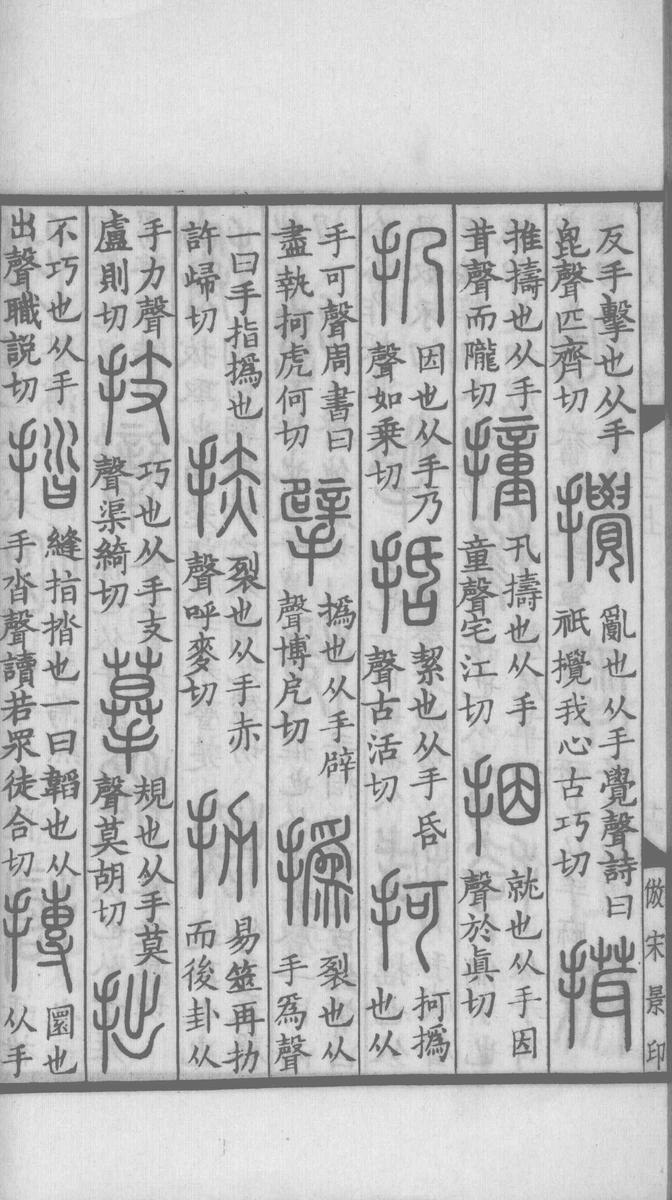 倣宋景印
反手擊也从手
毘聲匹齊切
攪
亂也从手覺聲詩曰
祇攪我心古巧切
搑
推擣也从手
茸聲而隴切
撞
卂擣也从手
童聲宅江切
捆
就也从手因
聲於眞切
扔
因也从手乃
聲如乘切
括
絜也从手昏
聲古活切
抲
抲撝也从
手可聲周書曰
盡執抲虎何切
擘
撝也从手辟
聲博戹切
撝
裂也从
手爲聲
一曰手指撝也
許歸切
捇
裂也从手赤
聲呼麥切
扐
易筮再扐
而後卦从
手力聲
盧則切
技
巧也从手支
聲渠綺切
摹
規也从手莫
聲莫胡切
拙
不巧也从手
出聲職說切
揩
縫指揩也一曰韜也从
手沓聲讀若眾徒合切
摶
圜也
从手